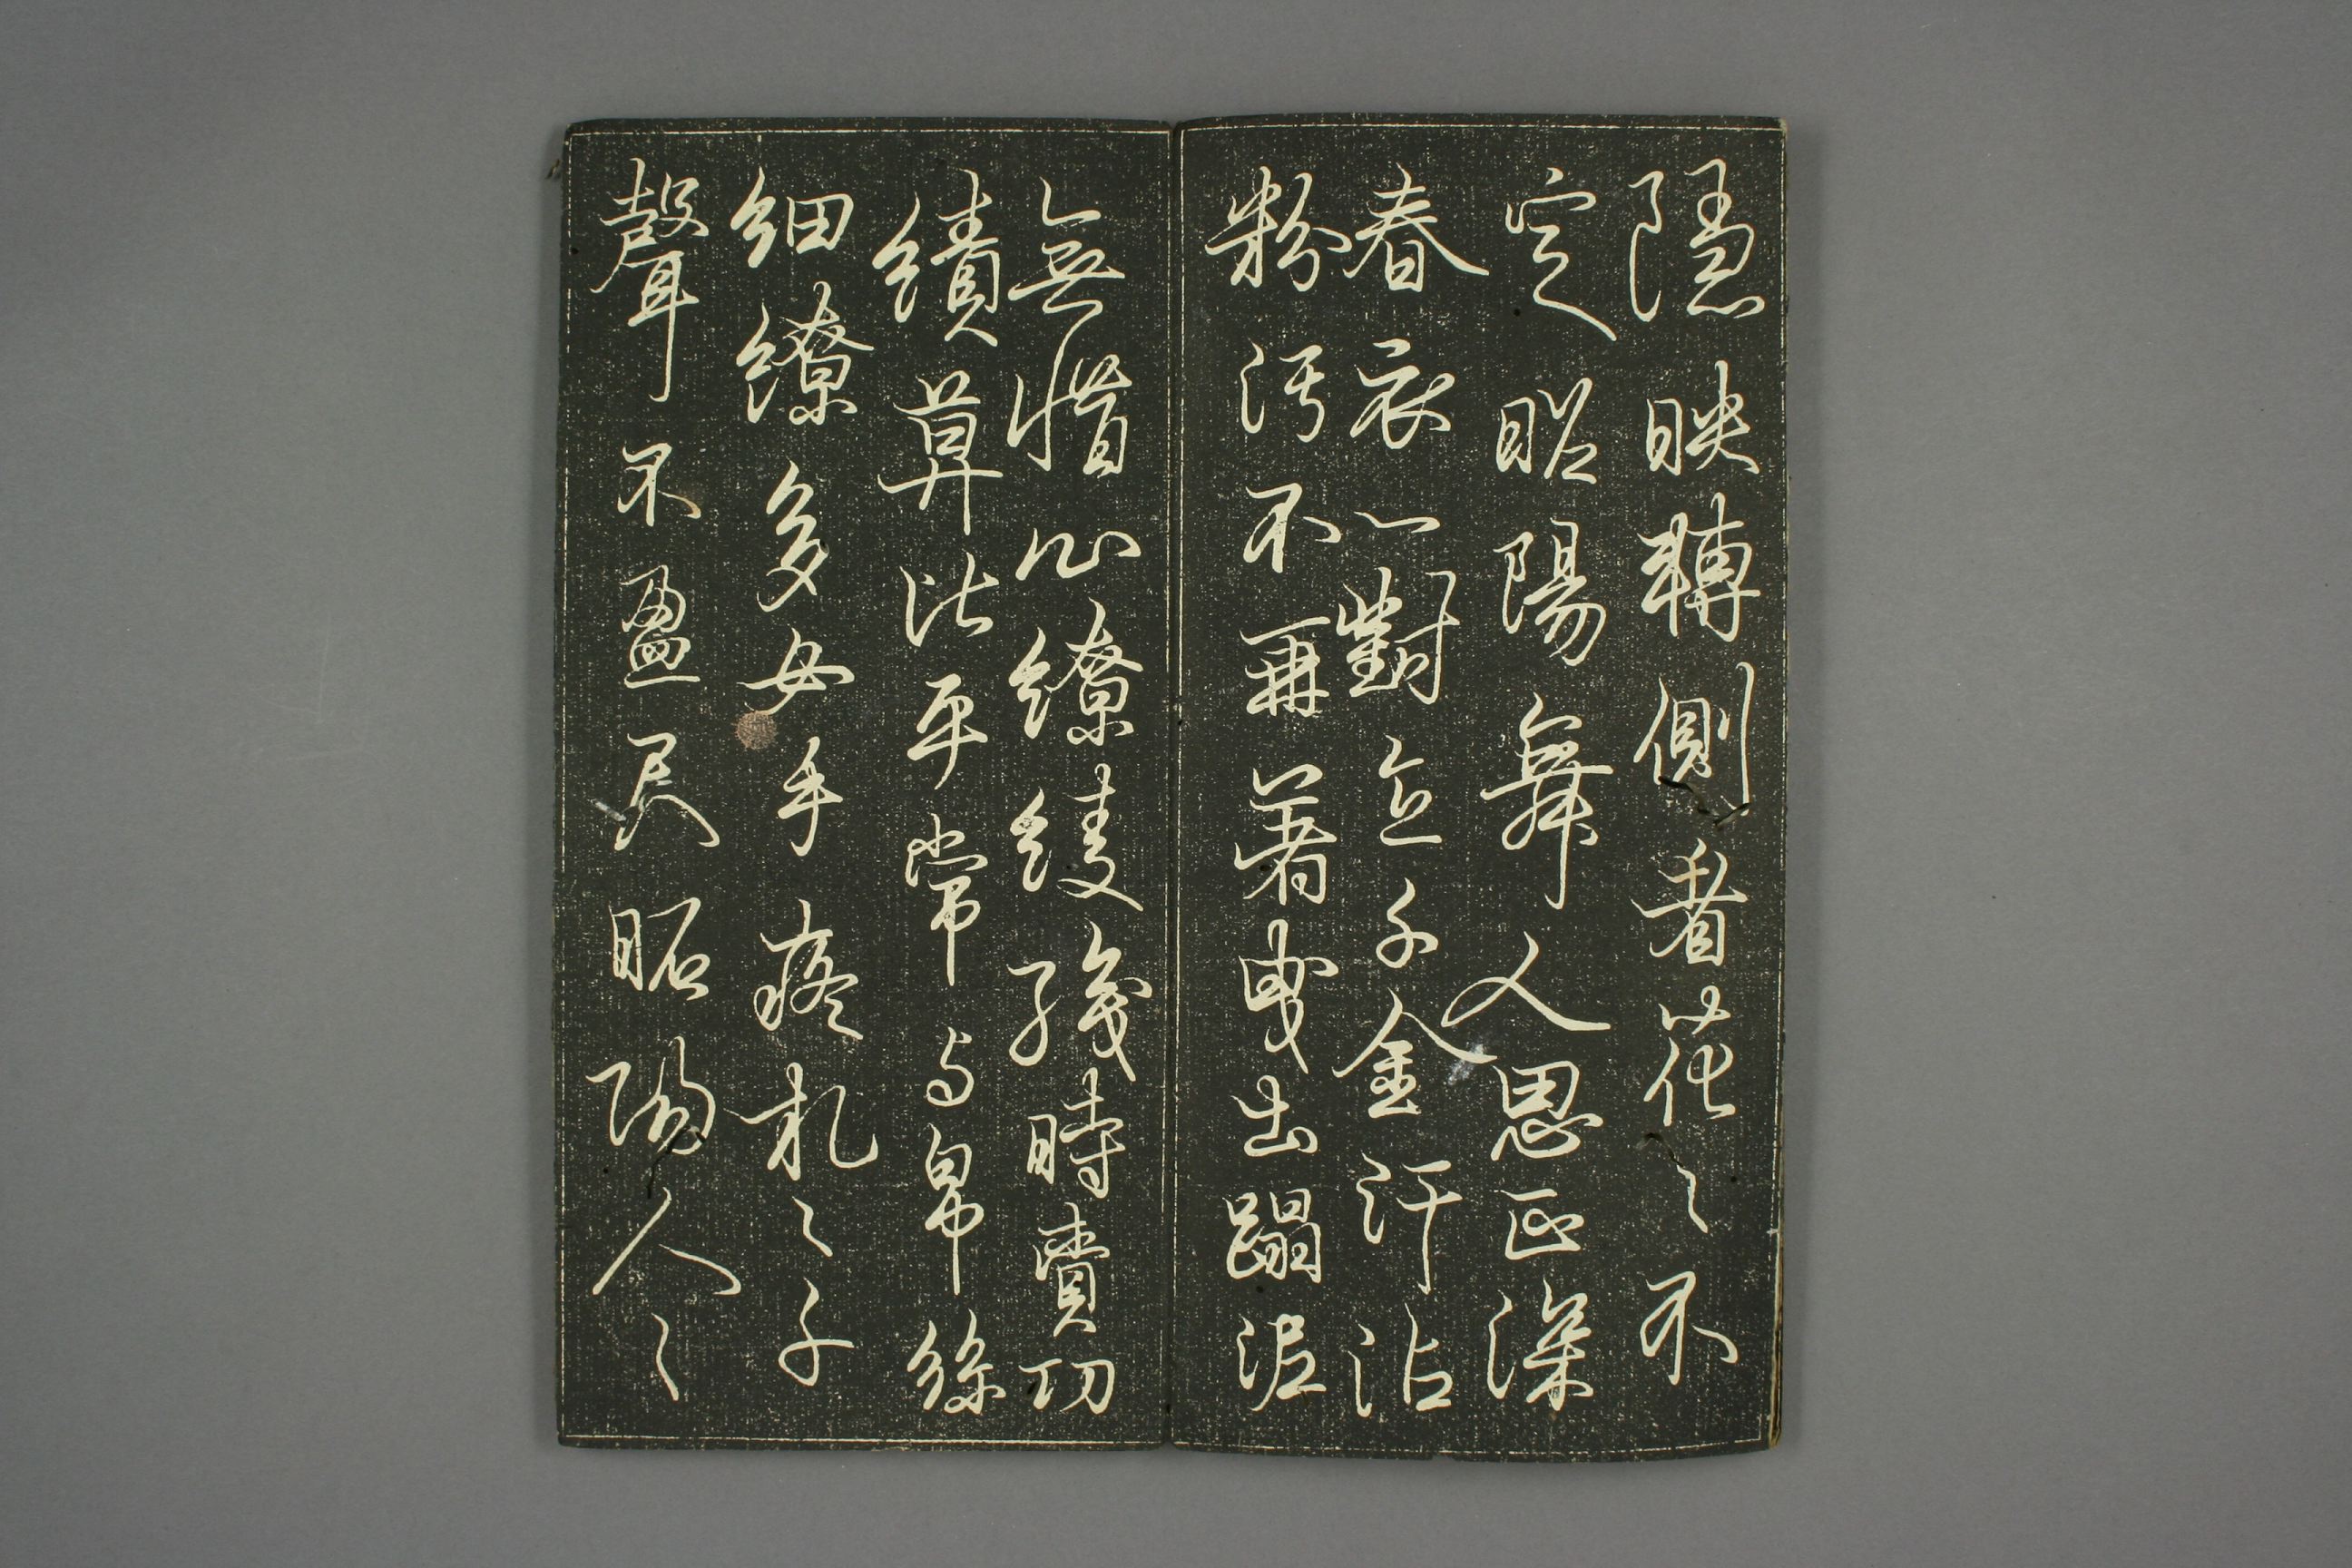 隱映轉側看花〻不
定昭陽舞人恩正深
春衣一對直千金汗沾
粉汙不再著曳出蹋泥
無惜心繚綾織時費功
績莫比平常与帛絲
細繚多女手疼札〻千
聲不盈尺昭陽人〻